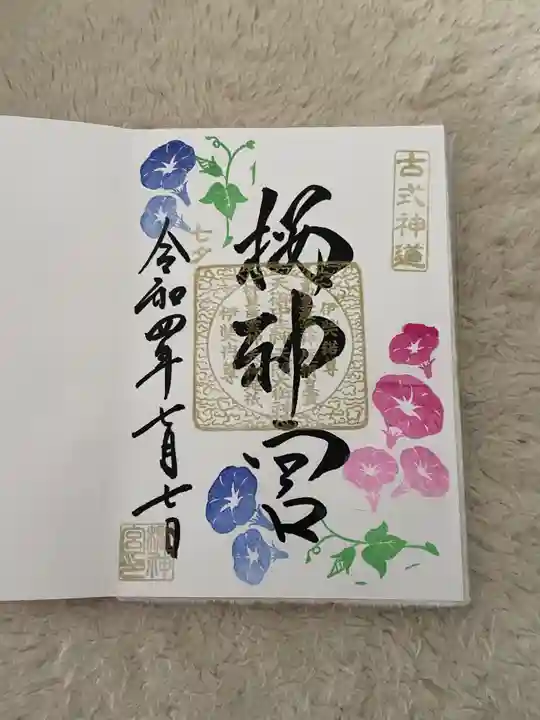 古式神道
櫻神宮
七夕
令和四年七月七日
櫻神
宮印